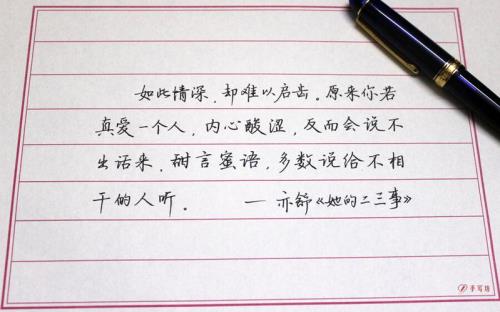 如此情深,却难以启齿。原来你若
真爱一个人,内心酸涩,反而会说不
出话来,甜言蜜语,多数说给不相
干的人听。 — 亦舒《她的二三事》
手写坊